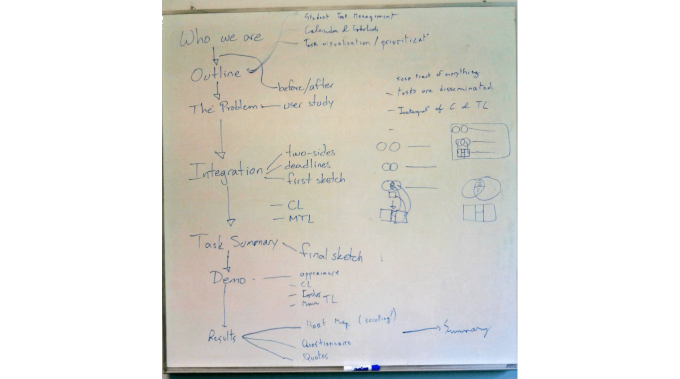 Student Task Management
Who we are
Calendars &
Task visualisation / prioritizat
Outline
before/after
The Problem
user study
keep track of everything
- tasks are disseminated
- of C & TL
Integration
two-sides
deadlines
first sketch
- CL
- MTL
Task Summary
final sketch
Demo
appearance
- CL
TL
Results
Questionnaire
Quotes
Summary